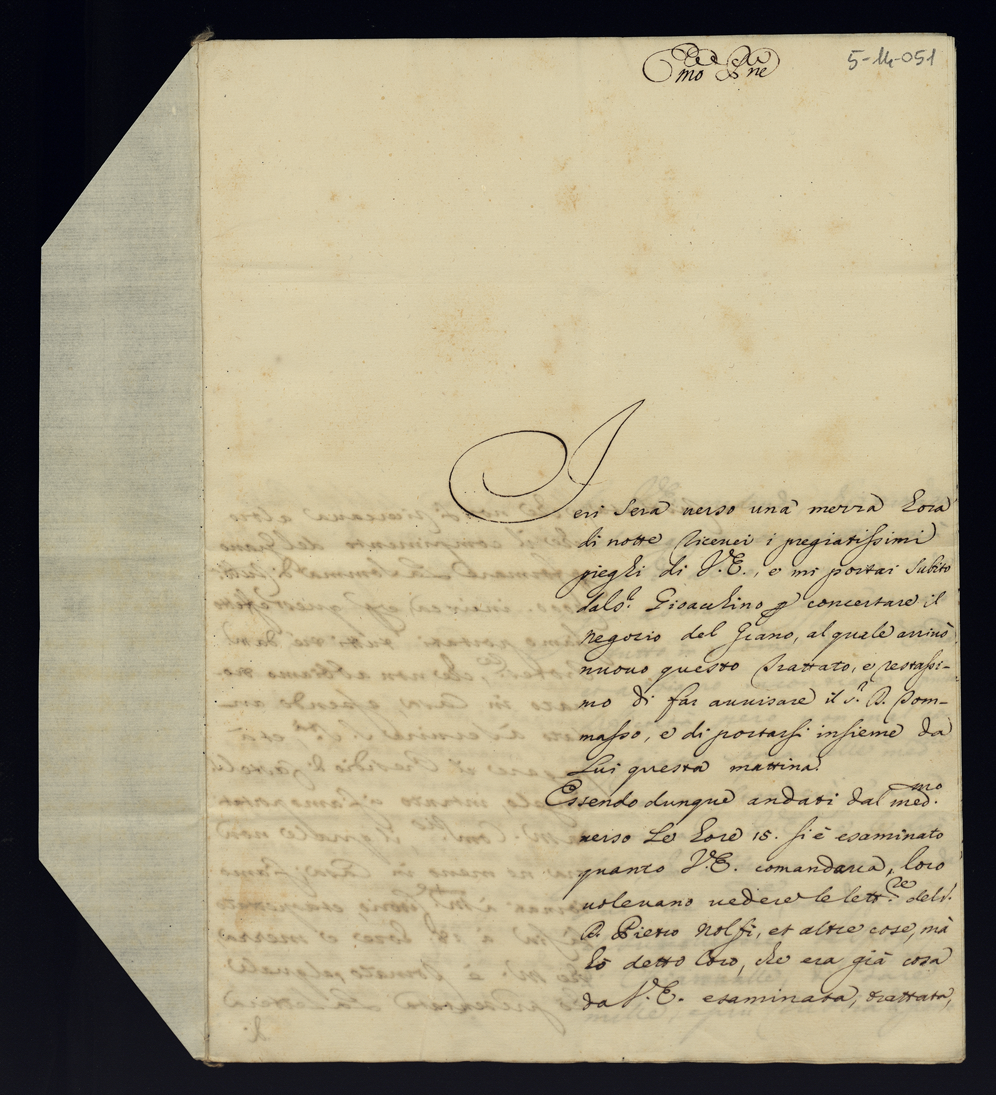 Ecc.mo Prne
5-14-051
Ieri sera verso una mezza hora
di notte ricevei i pregiatissimi
pieghi di V.E., e mi portai subito
dal S.r Gioachino p concertare il
negozio del Grano, al quale arrivò
nuovo questo trattato, e restassi-
mo di far avvisare il S.r D. Tom-
masso, e di portarsi insieme da
Lui questa mattina.
Essendo dunque andati dal med.mo
verso le hore 15. si è esaminato
quanto V.E. comandava, loro
volevano vedere le lett.re del S.r
D. Pietro Nolfi, et altre cose, mà
hò detto loro, che era già cosa
da V.E. esaminata, trattata,